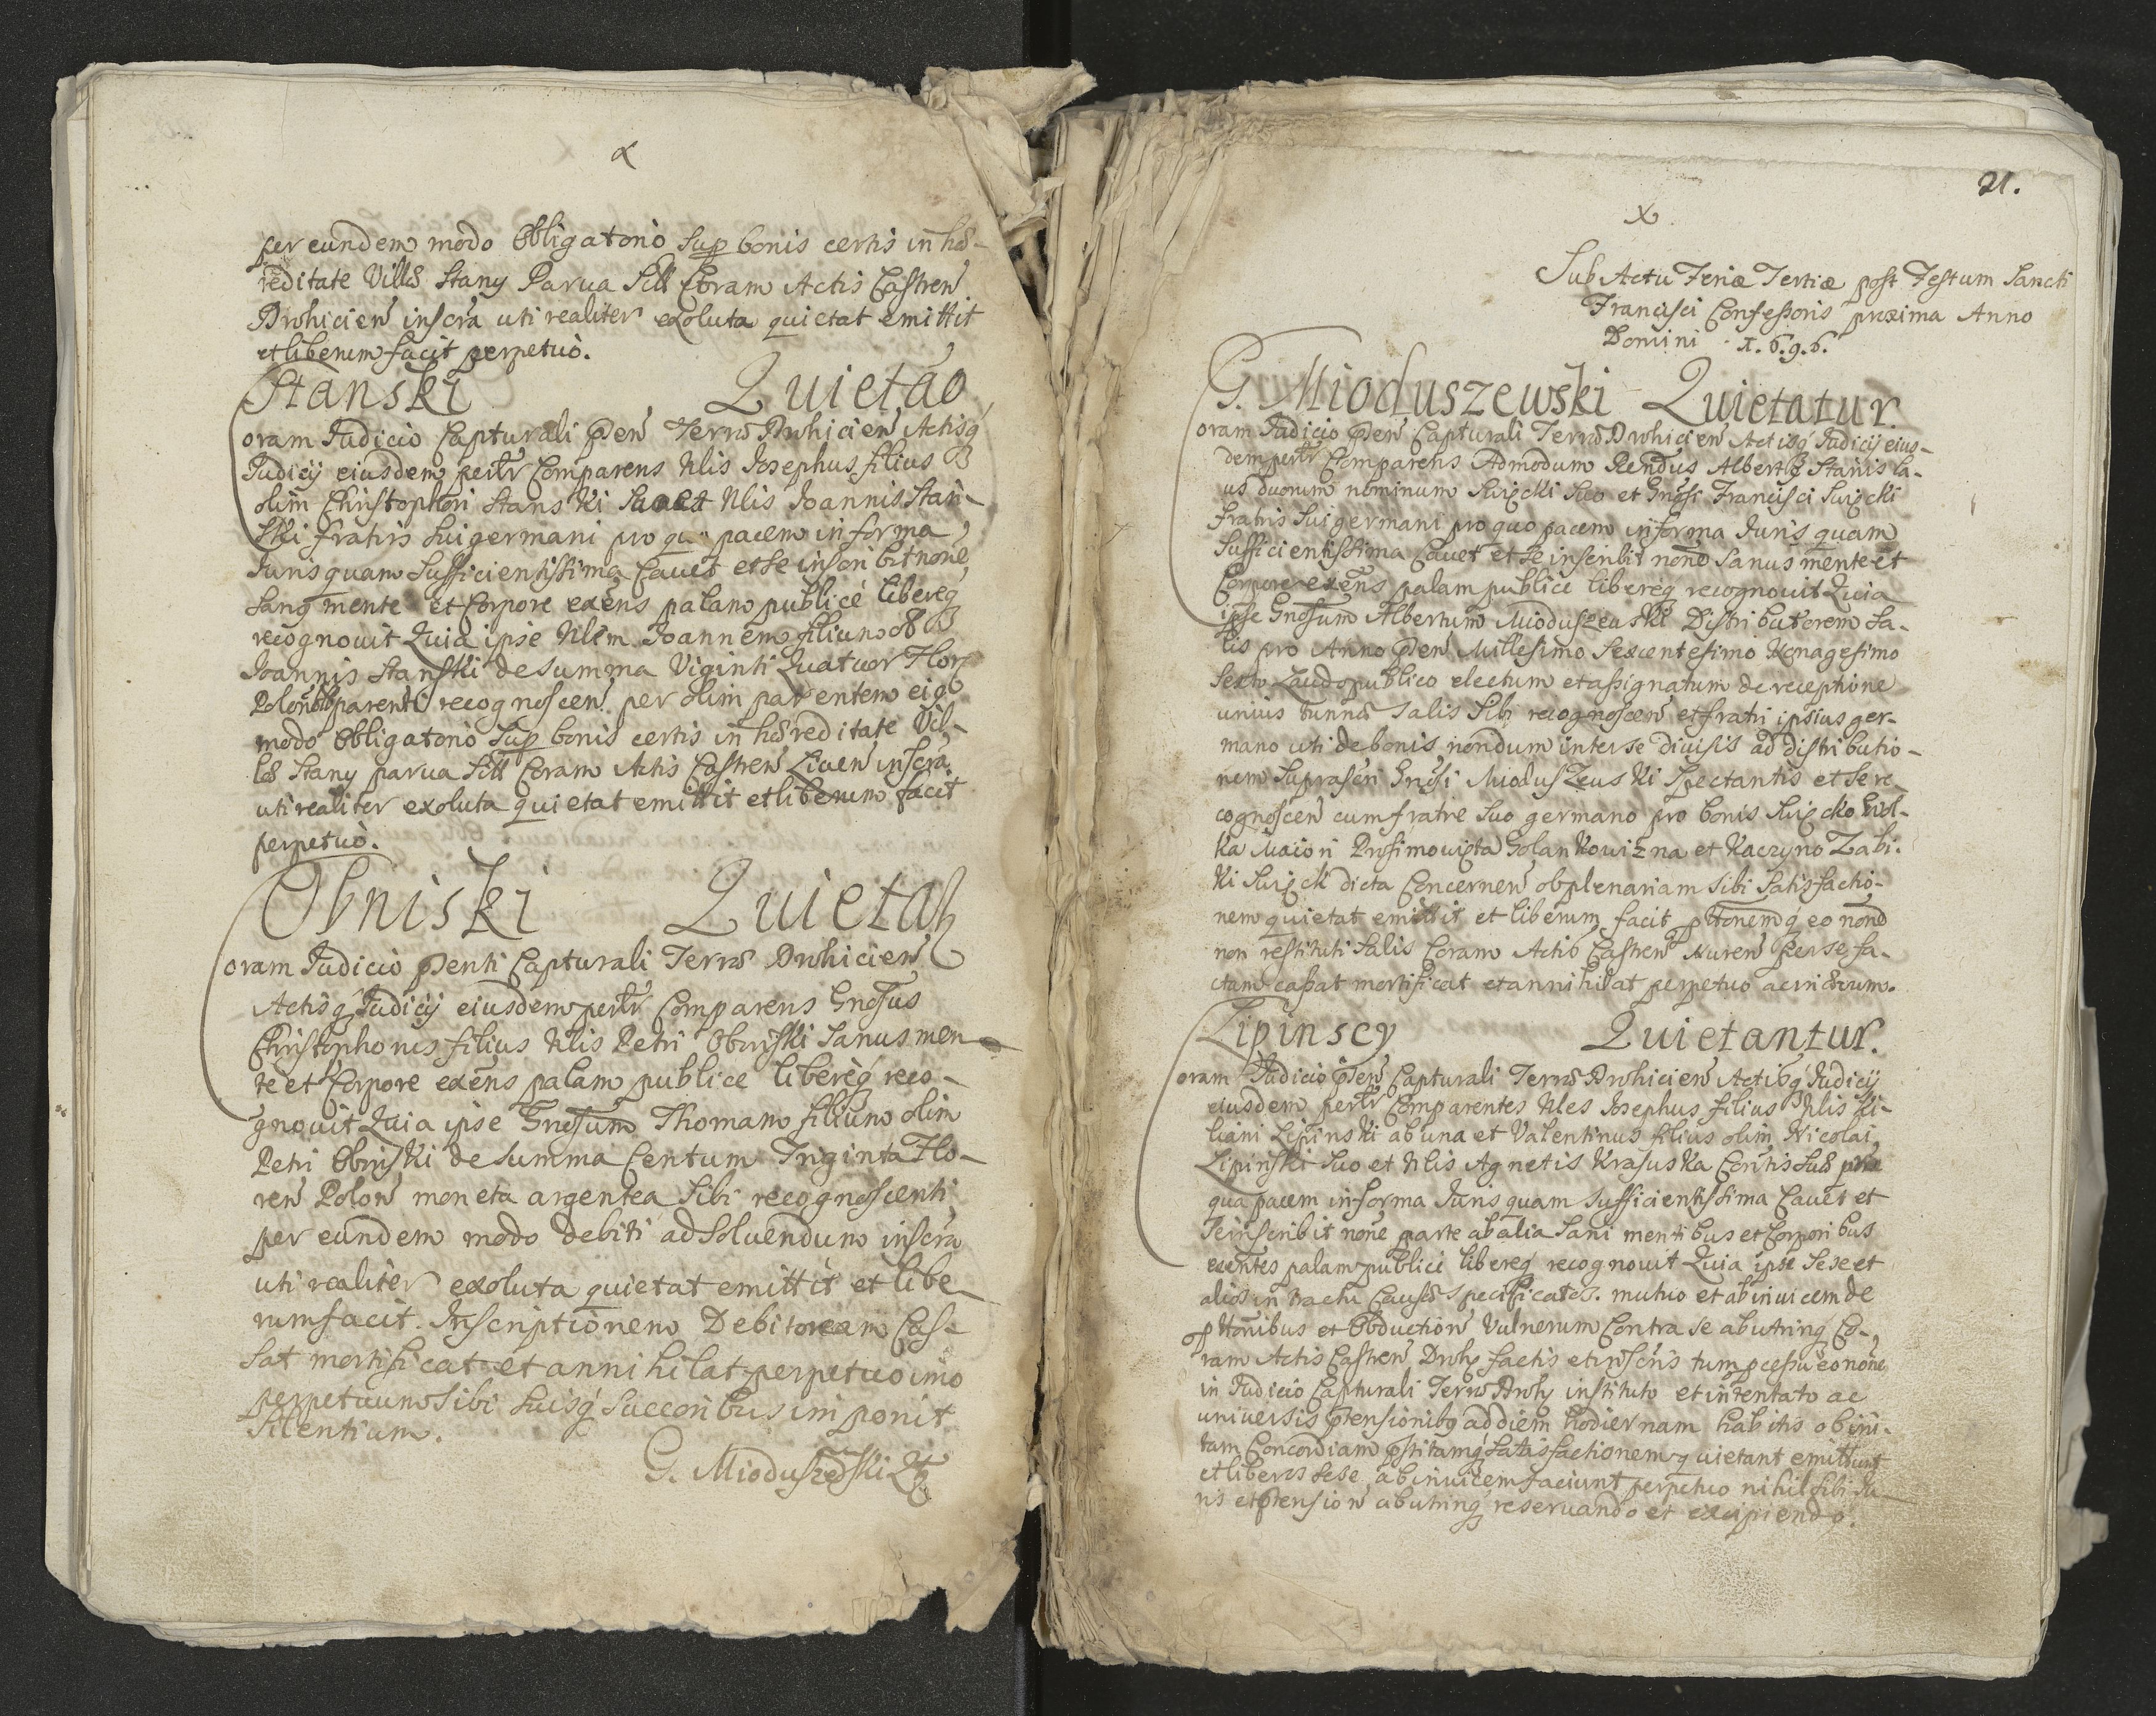 per eundem modo Obligatorio Sup bonis certis in hæ-
reditate Villæ Stany Parva Sitt Coram Actis Castren
Drohicien inscra uti realiter exoluta quietat emittit
et liberum facit perpetuo.
Stanski Quietao
oram Judicio Capturali Pnen Terræ Drohicien Actisq
Judicij eiusdem perlr Comparens Nlis Josephus filius
olim Christophori Stanski Suo et Nlis Joannis Stan-
ski fratris Sui germani pro quo pacem in forma
Juris quam Sufficientissima Cavet et se inscribit none
Sanq mente et Corpore exens palam publice libereq
recognovit Quia ipse Nlem Joannem filium
Joannis Stanski de summa Viginti Quatuor Flor
Polon parenti recognoscen per olim parentem eiq
modo Obligatorio Sup bonis certis in hæreditate Vil-
læ Stany parva Sitt Coram Actis Castren Liven inscra
uti realiter exoluta quietat emittit et liberum facit
perpetuo.
Obniski Quietat
oram Judicio Pnenti Capturali Terræ Drohicien
Actisq Judicij eiusdem perlr Comparens Gnosus
Christophorus filius Nlis Petri Obniski Sanus men-
te et Corpore exens palam publice libereq reco-
gnovit Quia ipse Gnosum Thomam filium olim
Petri Obniski de Summa Centum Triginta Flo-
ren Polon moneta argentea Sibi recognoscenti
per eundem modo debiti ad Solvendum inscra
uti realiter exoluta quietat emittit et libe-
rum facit. Inscriptionem Debitoream Cas-
sat mortificat et annihilat perpetuo imo
perpetuum Sibi Suisq Succoribus imponit
Silentium.
G. Mioduszewski
21.
x
Sub Actu Feriæ Tertiæ post Festum Sancti
Francisci Confessoris proxima Anno
Domini 1.6.9.6.
G. Mioduszewski Quietatur.
oram Judicio Pnen Capturali Terræ Drohicien Actisq Judicij eius-
dem perlr Comparens Admodum Rendus Albertq Stanisla-
us duorum nominum Skiycki Suo et Gnosi Francisci Skiycki
fratris Sui germani pro quo pacem in forma Juris quam
Sufficientissima Cavet et se inscribit none Sanus mente et
Corpore exens palam publice libereq recognovit Quia
ipse Gnosum Albertum Mioduszewski Distributorem Sa-
lis pro Anno Pnen Millesimo Sexcentesimo Nonagesimo
Sexto Laudo publico electum et assignatum de receptione
unius tunnæ Salis Sibi recognoscen et fratri ipsius ger-
mano uti de bonis nondum inter se divisis ad distributio-
nem Suprascri Gnosi Mioduszewski Spectantis et se re-
cognoscen cum fratre Suo germano pro bonis Skiycko Wol-
ka Maiori Prosimowizta Golankowizna et Kaczyno Zabi-
ki Skiyck dicta Concernen ob plenariam Sibi Satisfactio-
nem quietat emittit et liberum facit pttionemq eo none
non restituti Salis Coram Actis Castren Nuren per se fa-
ctam cassat mortificat et annihilat perpetuo
Lipinscy Quietantur.
oram Judicio Pnen Capturali Terræ Drohicien Actisq Judicij
eiusdem perlr Comparentes Nles Josephus filius Nlis Ki-
liani Lipinski ab una et Valentinus filius olim Nicolai
Lipinski Suo et Nlis Agnetis Krasuska Contis Suæ pro
qua pacem in forma Juris quam Sufficientissima Cavet et
Se inscribit none parte ab alia Sani mentibus et Corporibus
exentes palam publice libereq recognovit Quia ipse Sese et
alios in tractu Causæ Specificatos. mutuo et ab invicem de
pttionibus et Obduction Vulnerum Contra se ab utrinq Co-
ram Actis Castren Droh factis et inscris tum pcessu eo none
in Judicio Capturali Terræ Droh instituto et intentato ac
universis ptensionibq ad diem hodiernam habitis ob ini-
tam Concordiam pstitamq Satisfactionem quietant emittunt
et liberos sese ab invicem faciunt perpetuo nihil sibi Ju-
ris et ptension ab utrinq reservando et excipiendo.